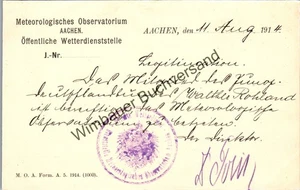 Meteorologisches Observatorium
AACHEN.
Öffentliche Wetterdienststelle
J.-Nr.
AACHEN, den 11 Aug. 1914.
Legitimation.
Das Mitglied des Jung-
deutschlandbundes Walther Rohland
ist berechtigt das Meteorologische
Observatorium zu betreten.
Der Direktor
Wimbauer Buchversand
M. O. A. Form. A. 5. 1914. (1000).